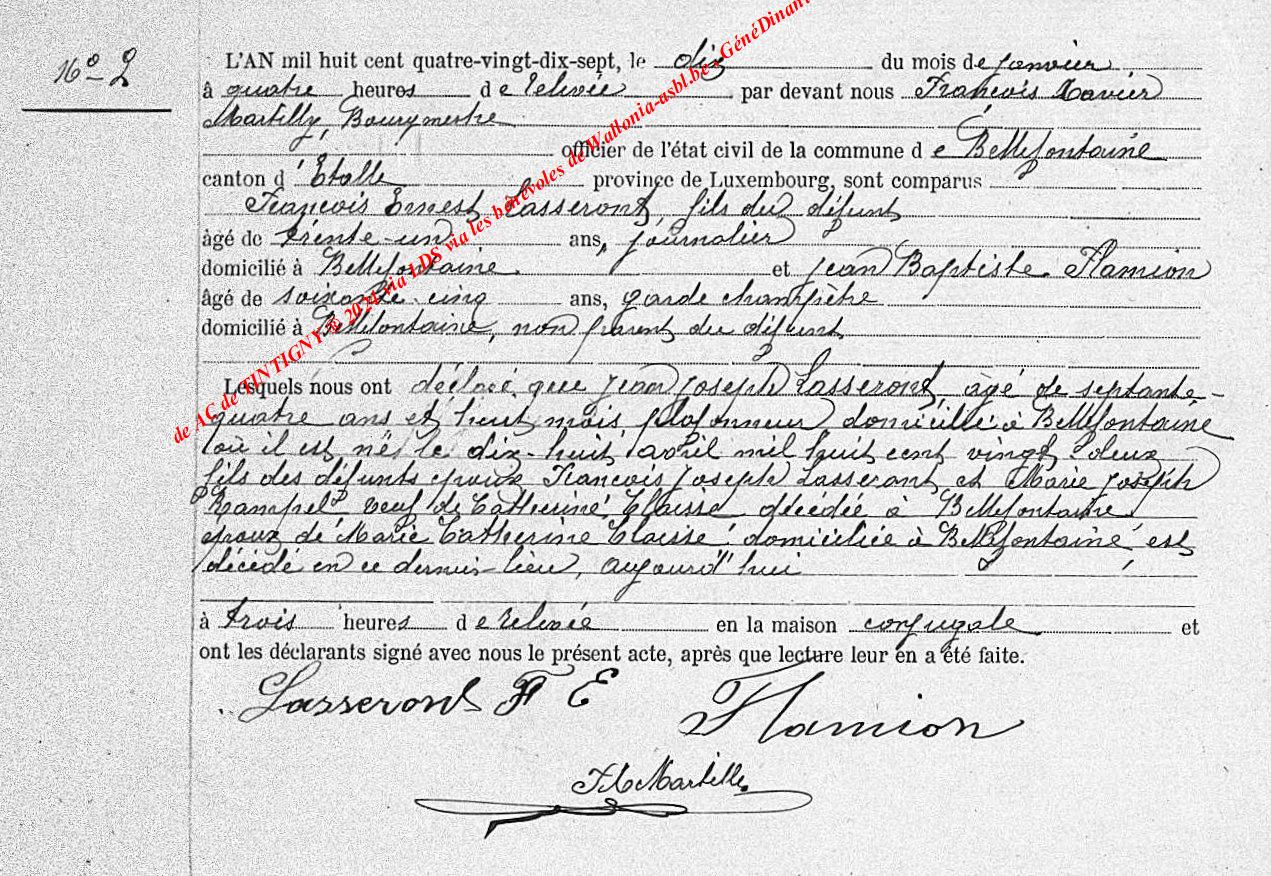 N° 2
L'AN mil huit cent quatre-vingt-dix-sept, le dix du mois de janvier
à quatre heures de relevée par devant nous François Xavier
Martilly, Bourgmestre
officier de l'état civil de la commune de Bellefontaine
canton d'Etalle province de Luxembourg, sont comparus
François Ernest Lasseront, fils du défunt
âgé de trente-un ans, journalier
domicilié à Bellefontaine et Jean Baptiste Flamion
âgé de soixante cinq ans, garde champêtre
domicilié à Bellefontaine, non parent du défunt
Lesquels nous ont déclaré que Jean Joseph Lasseront, âgé de septante-
quatre ans et huit mois, plafonneur domicilié à Bellefontaine
où il est né le dix-huit avril mil huit cent vingt deux
fils des défunts époux François Joseph Lasseront et Marie Joseph
veuf de Catherine Claisse décédée à Bellefontaine
époux de Marie Catherine Claisse domiciliée à Bellefontaine est
décédé en ce dernier lieu, aujourd'hui
à trois heures de relevée en la maison conjugale et
ont les déclarants signé avec nous le présent acte, après que lecture leur en a été faite.
Lasseront F E Flamion
de AC de TINTIGNY © 2024 via LDS via les bénévoles de Wallonia-asbl.be - GénéDinant